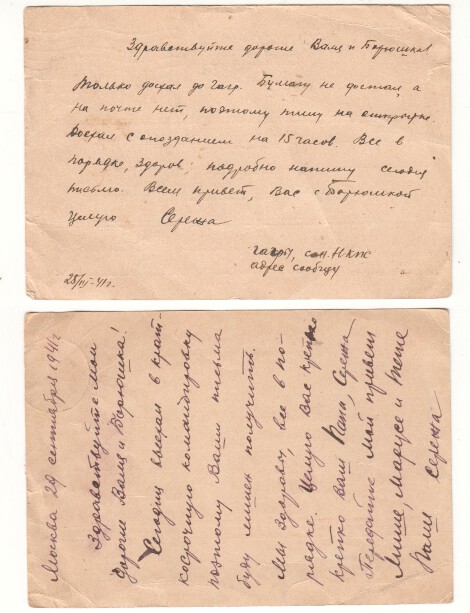 Здравствуйте дорогие Валя и Борюшка
только доехал до Гагр. Бумагу не достал, а
на почте нет, поэтому пишу на открытке.
Доехал с опозданием на 15 часов. Все в
порядке, здоров, подробно напишу сегодня
письмо. Всем привет, Вас с Борюшкой
целую Сережа
Гагры, сан. НКПС
адрес сообщу
28/III-41г.
Москва 29 сентября 1941г
Здравствуйте мои
дорогие Валя и Борюшка!
Сегодня выехал в крат-
косрочную командировку
поэтому Ваши письма
буду лишен получить.
Мы здоровы, все в по-
рядке. Целую Вас крепко
крепко Ваш Папа, Сережа
Передайте мой привет
Мише, Марусе и тете
Ваш Сережа